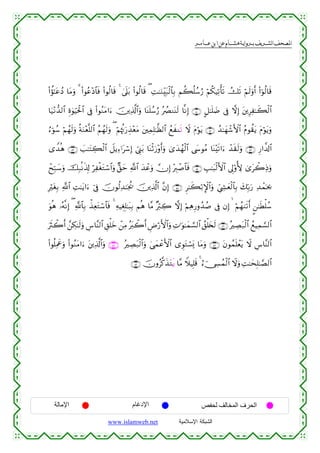 المصحف الشريف برواية هشام عن ابن عامر
قَالُوٓا۟ أَوَلَمْ تَكُ تَأْتِيكُمْ رُسُلُكُم بِٱلْبَيِّنَٰتِ ۖ قَالُوا۟ بَلَىٰ ۚ قَالُوا۟ فَٱدْعُوا۟ ۗ وَمَا دُعَٰٓؤُا۟
ٱلْكَٰفِرِينَ إِلَّا فِى ضَلَٰلٍ إِنَّا لَنَنصُرُ رُسُلَنَا وَٱلَّذِينَ ءَامَنُوا۟ فِى ٱلْحَيَوٰةِ ٱلدُّنْيَا
وَيَوْمَ يَقُومُ ٱلْأَشْهَٰدُ يَوْمَ لَا تَنفَعُ ٱلظَّٰلِمِينَ مَعْذِرَتُهُمْ ۖ وَلَهُمُ ٱللَّعْنَةُ وَلَهُمْ سُوٓءُ
ٱلدَّارِ وَلَقَدْ ءَاتَيْنَا مُوسَى ٱلْهُدَىٰ وَأَوْرَثْنَا بَنِىٓ إِسْرَٰٓءِيلَ ٱلْكِتَٰبَ هُدًى
وَذِكْرَىٰ لِأُو۟لِى ٱلْأَلْبَٰبِ فَٱصْبِرْ إِنَّ وَعْدَ ٱللَّهِ حَقٌّ وَٱسْتَغْفِرْ لِذَنۢبِكَ وَسَبِّحْ
بِحَمْدِ رَبِّكَ بِٱلْعَشِىِّ وَٱلْإِبْكَٰرِ إِنَّ ٱلَّذِينَ يُجَٰدِلُونَ فِىٓ ءَايَٰتِ ٱللَّهِ بِغَيْرِ
سُلْطَٰنٍ أَتَىٰهُمْ ۙ إِن فِى صُدُورِهِمْ إِلَّا كِبْرٌ مَّا هُم بِبَٰلِغِيهِ ۚ فَٱسْتَعِذْ بِٱللَّهِ ۖ إِنَّهُۥ هُوَ
ٱلسَّمِيعُ ٱلْبَصِيرُ لَخَلْقُ ٱلسَّمَٰوَٰتِ وَٱلْأَرْضِ أَكْبَرُ مِنْ خَلْقِ ٱلنَّاسِ وَلَٰكِنَّ أَكْثَرَ
ٱلنَّاسِ لَا يَعْلَمُونَ وَمَا يَسْتَوِى ٱلْأَعْمَىٰ وَٱلْبَصِيرُ وَٱلَّذِينَ ءَامَنُوا۟ وَعَمِلُوا۟
ٱلصَّٰلِحَٰتِ وَلَا ٱلْمُسِىٓءُ ۚ قَلِيلًا مَّا يَتَذَكَّرُونَ
الحرف المخالف لحفص الإدغام الإمالة
الشبكة الإسلامية www.islamweb.net